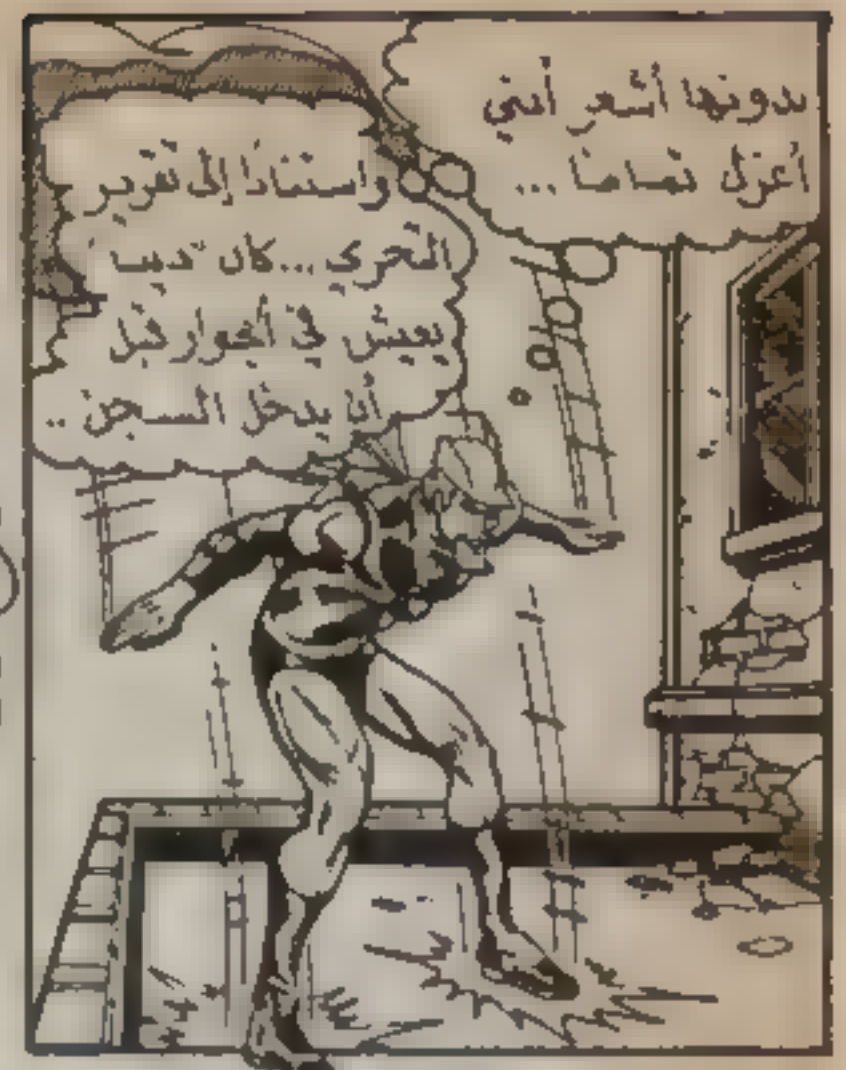 بدونها أشعر أنني
أعزل تماماً ...
واستناداً إلى تقرير
التحري ... كان "ديب"
يعيش في الجوار قبل
أن يدخل السجن ..